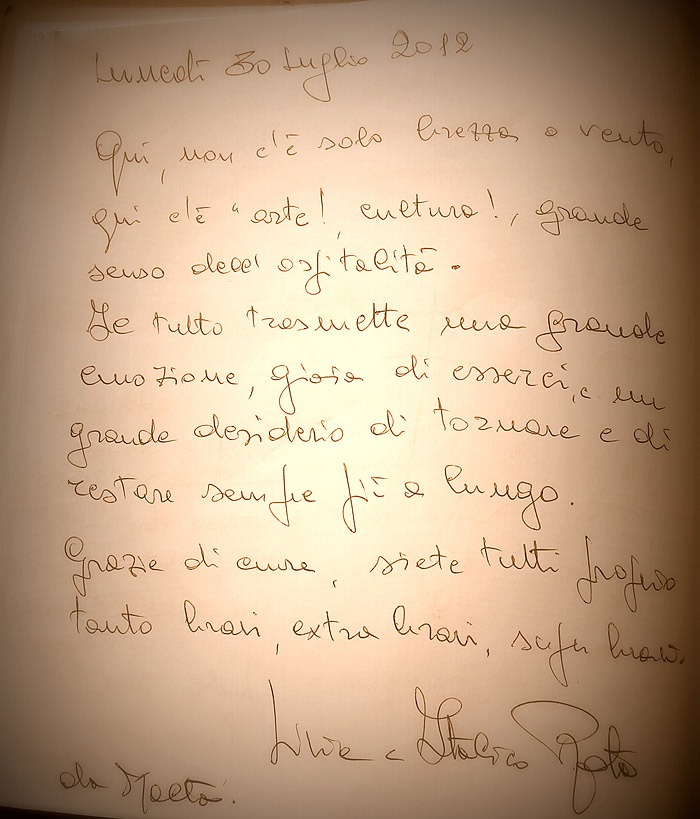 Lunedì 30 Luglio 2012
Qui, non c'è solo brezza o vento,
qui c'è "arte!, cultura!, grande
senso dell'ospitalità.
Il tutto trasmette una grande
emozione, gioia di esserci, e un
grande desiderio di tornare e di
restare sempre più a lungo.
Grazie di cuore, siete tutti proprio
tanto bravi, extra bravi, super bravi.
e Italico
da